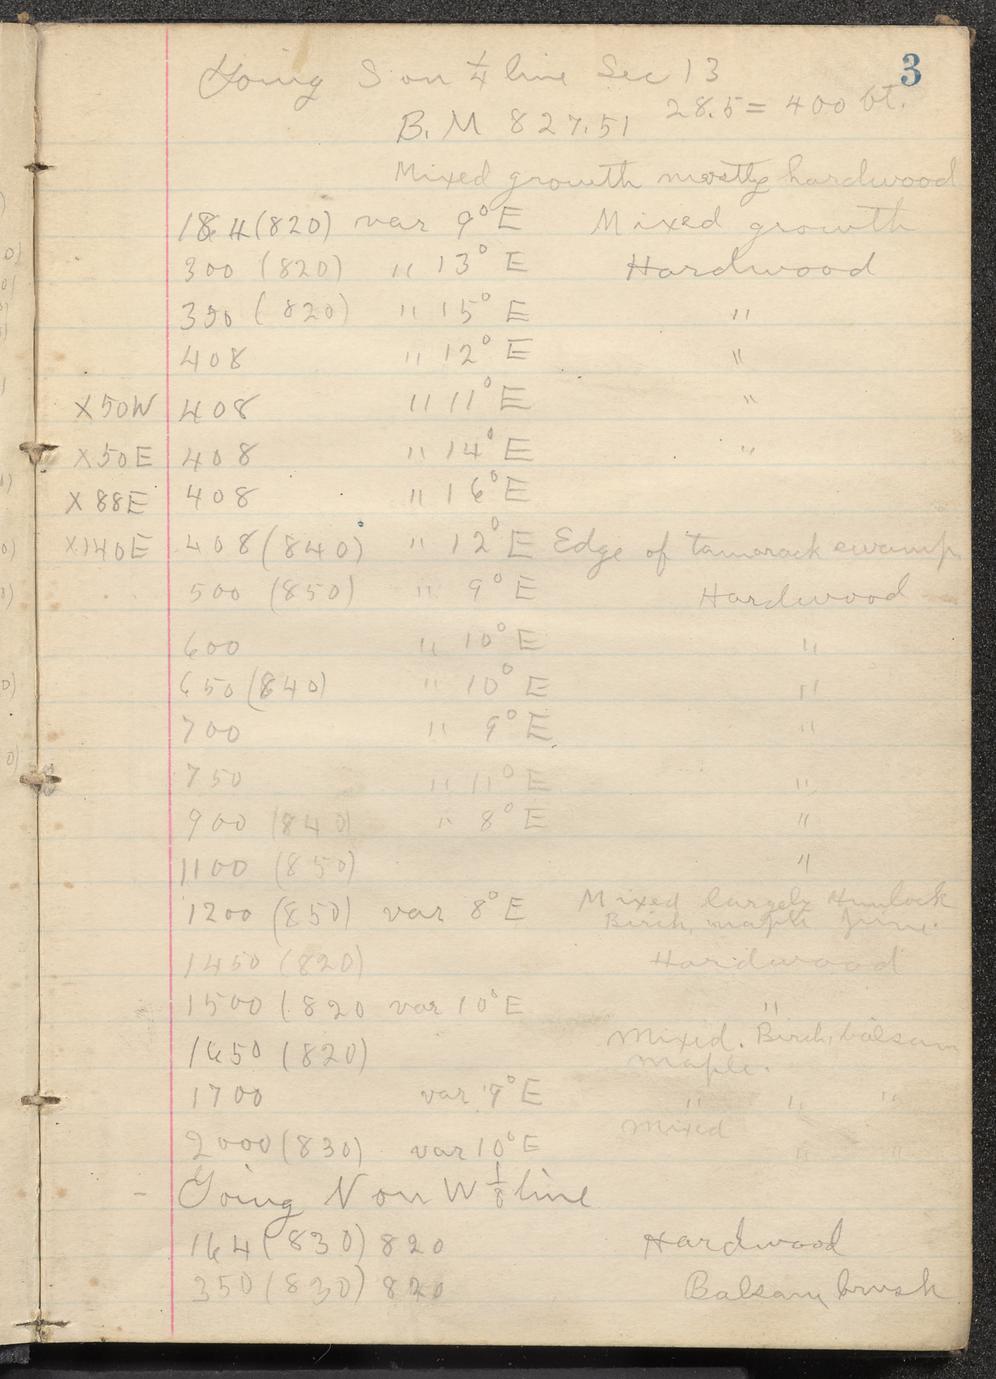 3
Going S on 1/4 line Sec 13
28.5 = 400 bt.
B. M 827.51
Mixed growth mostly hardwood
184 (820) var 9° E Mixed growth
300 (820) " 13° E Hardwood
350 (820) " 15° E "
408 " 12° E "
X50W 408 " 11° E "
X50E 408 " 14° E "
X88E 408 " 16° E
X140E 408 (840) " 12° E Edge of tamarack swamp
500 (850) " 9° E Hardwood
600 " 10° E "
650 (840) " 10° E "
700 " 9° E "
750 " 11° E "
900 (840) " 8° E "
1100 (850) "
1200 (850) var 8° E Mixed largely Hemlock
Birch, maple
1450 (820) Hardwood
1500 (820 var 10° E "
Mixed. Birch, balsam
1650 (820) maple.
1700 var 9° E " " "
Mixed
2000 (830) var 10° E " "
- Going N on W 1/8 line
164 (830) 820 Hardwood
350 (830) 820 Balsam brush